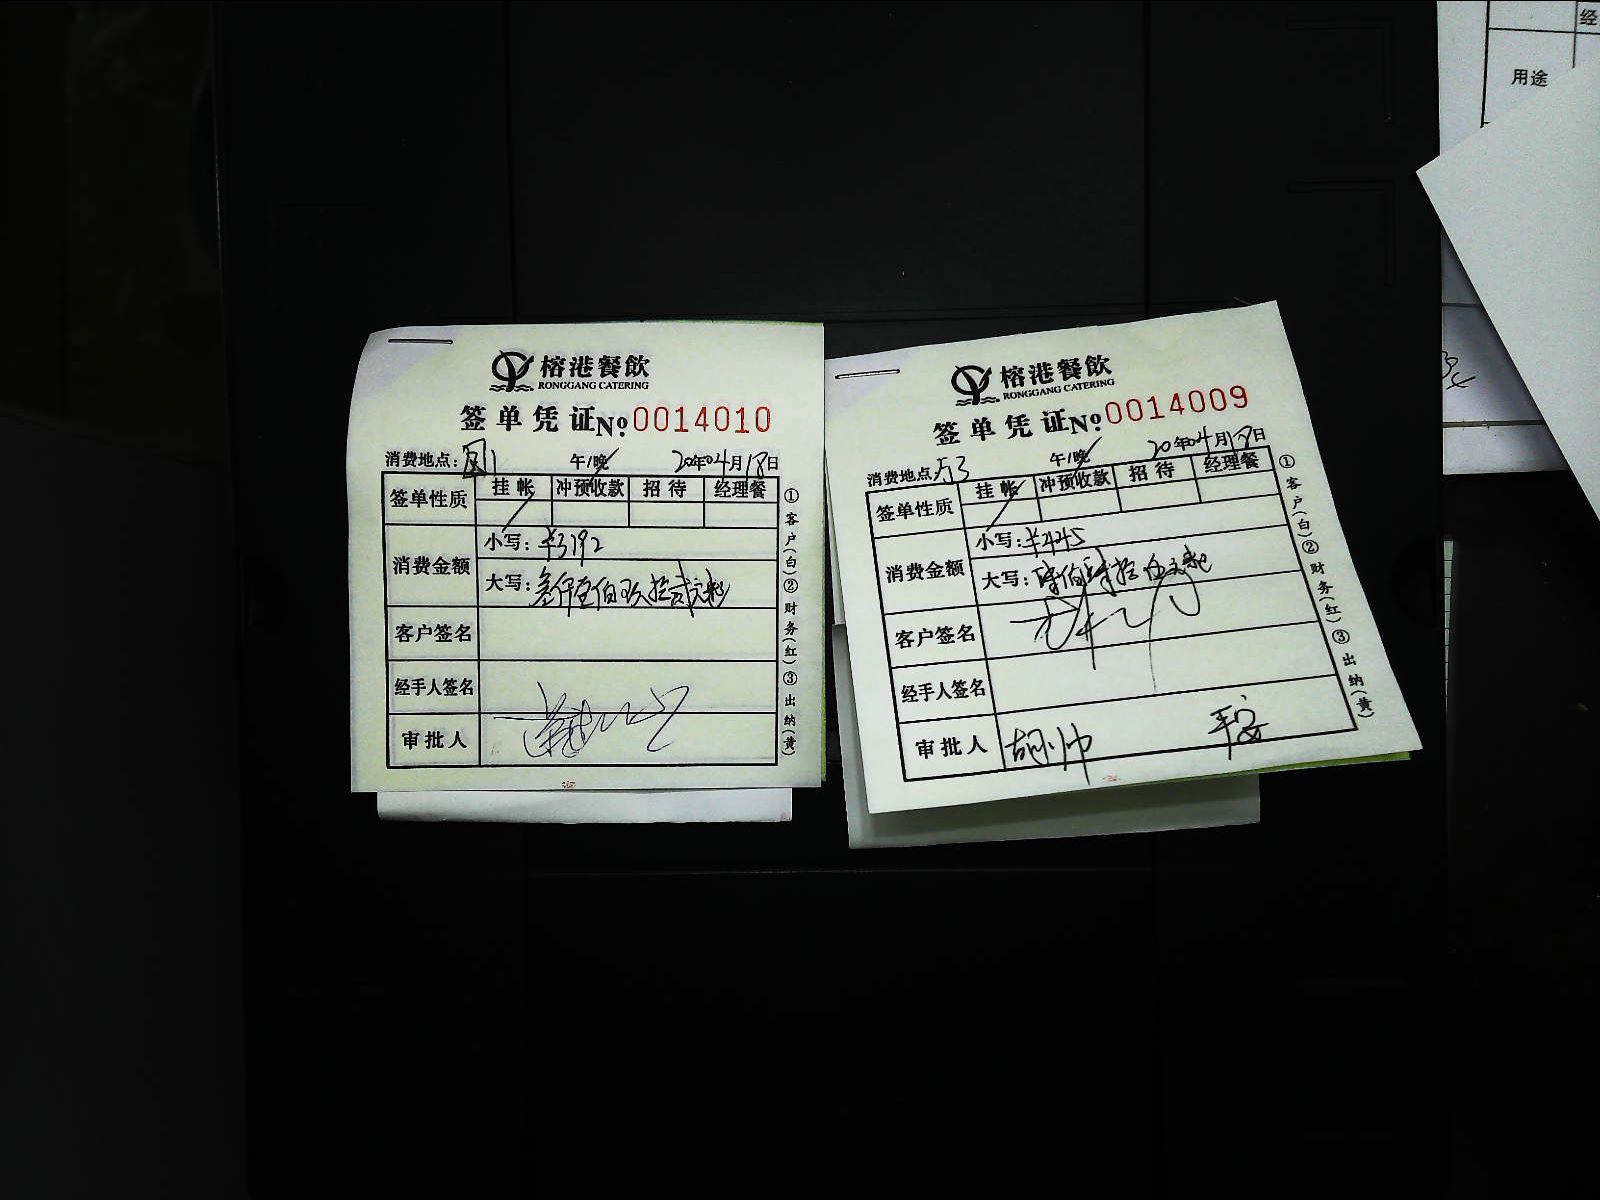 榕港餐飲
RONGGANG CATERING
签单凭证 No: 0014010
消费地点: 1 午/晚 20年04月18日
签单性质 挂帐 冲预收款 招待 经理餐
消费金额 小写: ¥3192
大写: 叁仟壹佰玖拾贰元整
客户签名
经手人签名
审批人
①客户(白)②财务(红)③出纳(黄)
榕港餐飲
RONGGANG CATERING
签单凭证 No: 0014009
消费地点: 午/晚 20年04月18日
签单性质 挂帐 冲预收款 招待 经理餐
消费金额 小写: ¥445
大写: 肆佰肆拾伍元整
客户签名
经手人签名
审批人 胡小帅 平安
①客户(白)②财务(红)③出纳(黄)
经
用途